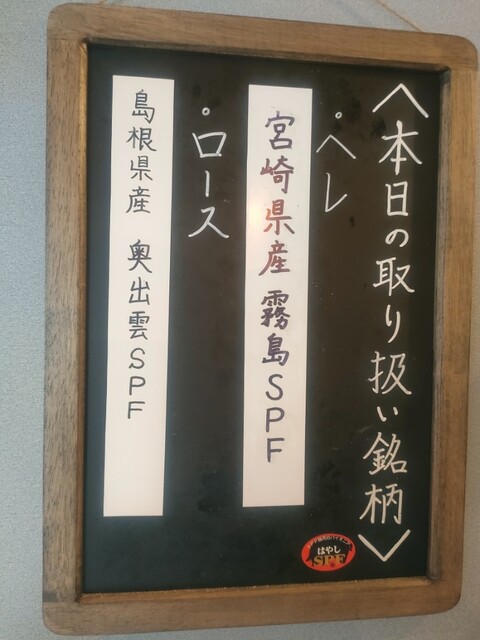 〈本日の取り扱い銘柄〉
・ヘレ
宮崎県産 霧島SPF
・ロース
島根県産 奥出雲SPF
はやし
SPF